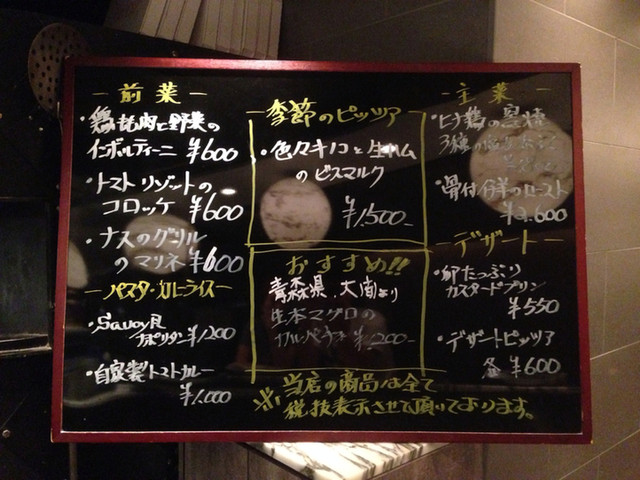 ー前菜ー
・鶏挽肉と野菜の
インボルティーニ ¥600
・トマトリゾットの
コロッケ ¥600
・ナスのグリル
のマリネ ¥600
ーパスタ・カレーライスー
・Savoy風
ナポリタン ¥1200
・自家製トマトカレー
¥1,000
ー季節のピッツァ
・色々キノコと生ハム
のビスマルク
¥1,500-
おすすめ!!
青森県、大間より
生本マグロの
カルパッチョ ¥1,200-
ー主菜ー
・ヒナ鶏の
3種の
・骨付仔羊のロースト
¥2,600
ーデザートー
・卵たっぷり
カスタードプリン
¥550
・デザートピッツァ
各 ¥600
※当店の商品は全て
税抜表示させて頂いております。